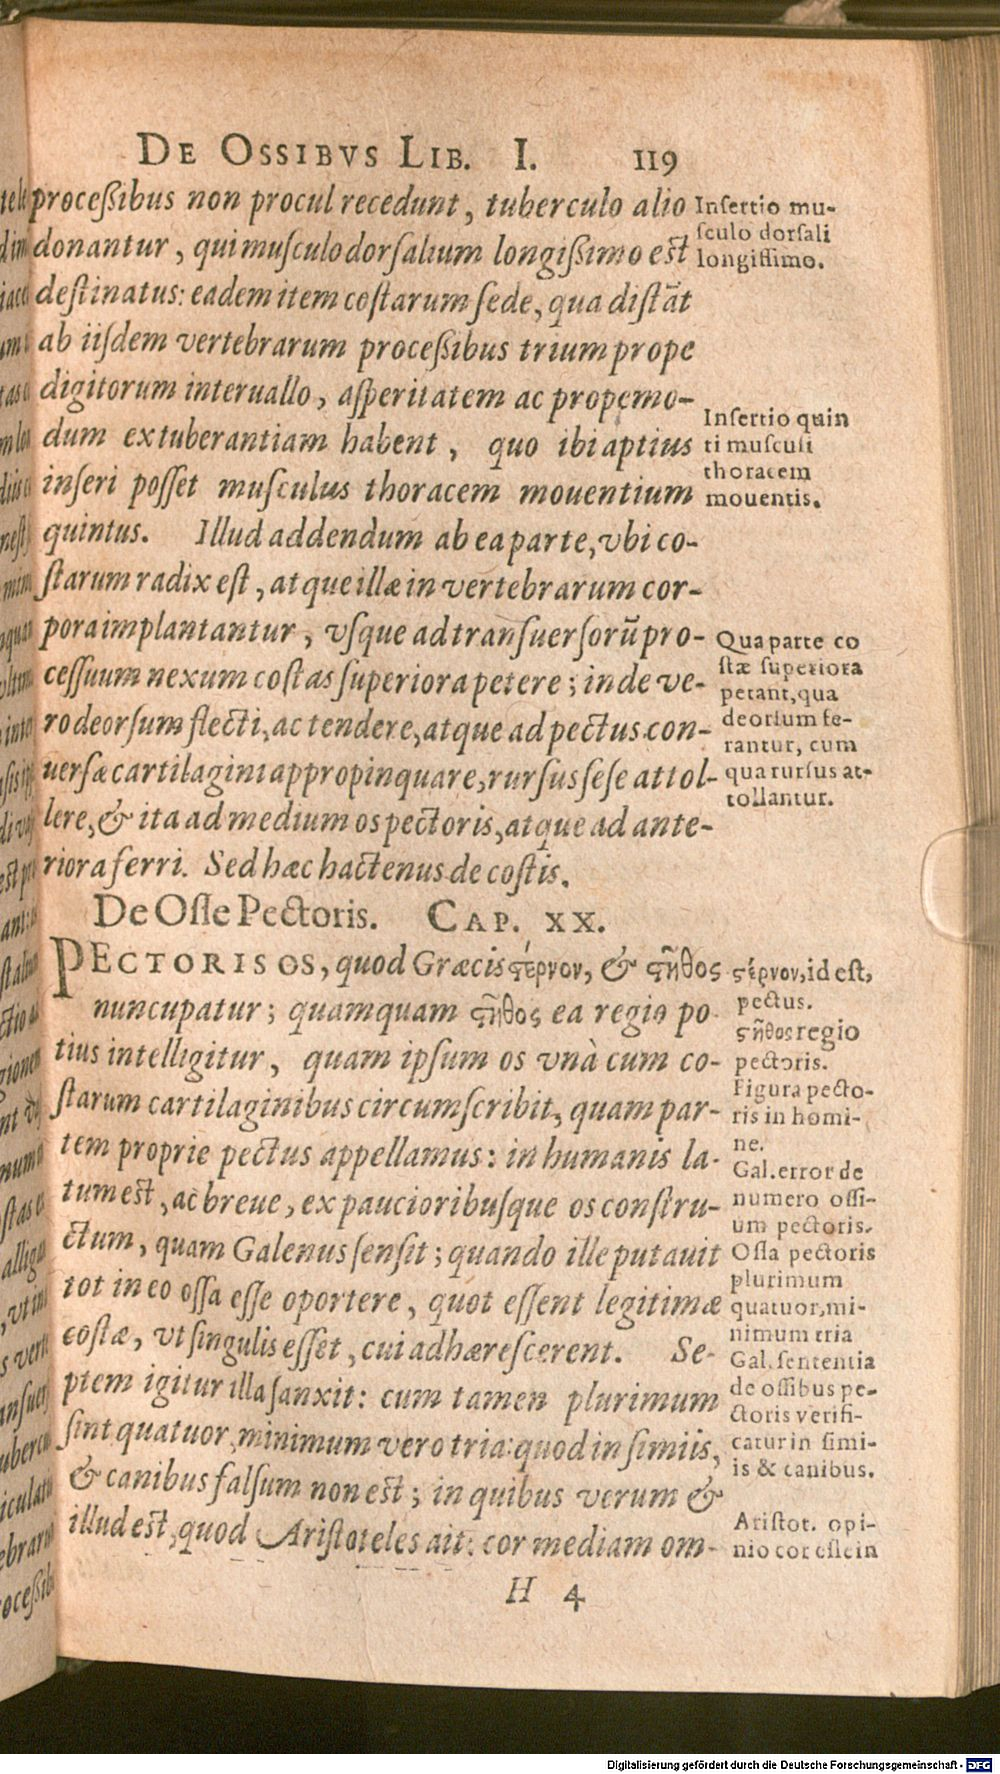 DE OSSIBVS LIB. I. 119
proceſſibus non procul recedunt, tuberculo alio
donantur, qui muſculo dorſalium longiſſimo est
deſtinatus: eadem item coſtarum ſede, qua diſtāt
ab iiſdem vertebrarum proceſſibus trium prope
digitorum interuallo, aſperitatem ac propemo-
dum extuberantiam habent, quo ibi aptius
inſeri poſſet muſculus thoracem mouentium
quintus. Illud addendum ab ea parte, vbi co-
ſtarum radix eſt, atque illæ in vertebrarum cor-
pora implantantur, vſque ad tranſuerſorū pro-
ceſſuum nexum coſtas ſuperiora petere; inde ve-
ro deorſum flecti, ac tendere, atque ad pectus con-
uerſæ cartilagini appropinquare, rurſus ſeſe attol-
lere, & ita ad medium os pectoris, atque ad ante-
riora ferri. Sed hæc hactenus de coſtis.
De Oſſe Pectoris. CAP. XX.
PECTORIS OS, quod Græcis ϛέρνον, & ϛῆθος
nuncupatur; quamquam ϛῆθος ea regio po
tius intelligitur, quam ipſum os vnà cum co-
ſtarum cartilaginibus circumſcribit, quam par-
tem proprie pectus appellamus: in humanis la-
tum est, ac breue, ex paucioribuſque os conſtru-
ctum, quam Galenus ſenſit; quando ille putauit
tot in eo oſſa eſſe oportere, quot eſſent legitimæ
coſtæ, vt ſingulis eſſet, cui adhæreſcerent. Se-
ptem igitur illa ſanxit: cum tamen plurimum
ſint quatuor, minimum vero tria: quod in ſimiis,
& canibus falſum non est; in quibus verum &
illud est, quod Ariſtoteles ait: cor mediam om-
H 4
Inſertio mu-
ſculo dorſali
longiſſimo.
Inſertio quin
ti muſculi
thoracem
mouentis.
Qua parte co
ſtæ ſuperiora
petant, qua
deorſum fe-
rantur, cum
qua rurſus at-
tollantur.
ϛέρνον, id eſt,
pectus.
ϛῆθος regio
pectoris.
Figura pecto-
ris in homi-
ne.
Gal. error de
numero oſſi-
um pectoris.
Oſſa pectoris
plurimum
quatuor, mi-
nimum tria
Gal. ſententia
de oſſibus pe-
ctoris verifi-
catur in ſimi-
is & canibus.
Ariſtot. opi-
nio cor eſſe in
Digitalisierung gefördert durch die Deutsche Forschungsgemeinschaft - DFG